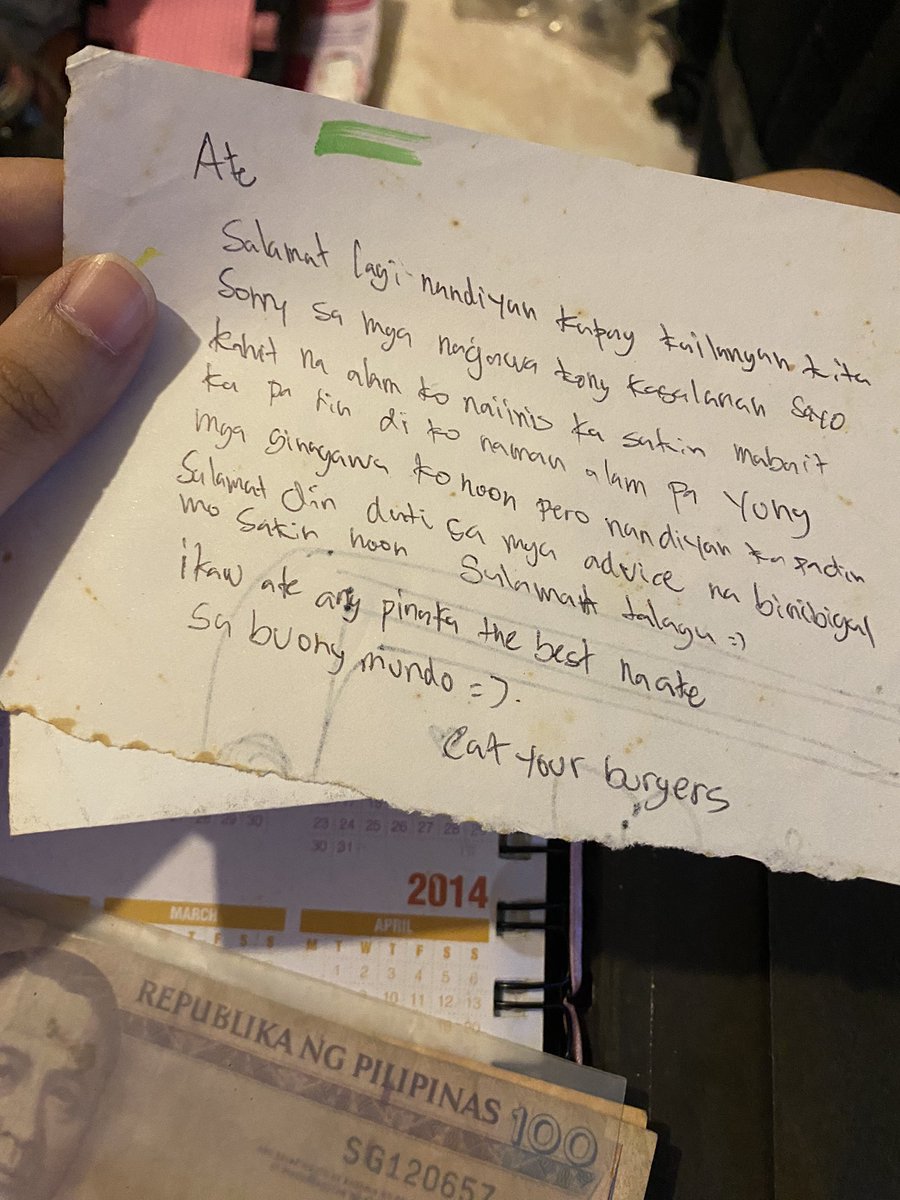 Ate
Salamat lagi nandiyan kapag kailangan kita
Sorry sa mga nagawa kong kasalanan sayo
kahit na alam ko naiinis ka sakin mabait
ka pa rin di ko naman alam pa yung
mga ginagawa ko noon pero nandiyan ka padin
Salamat din dati sa mga advice na binibigal
mo sakin noon Salamat talaga =)
ikaw ate ang pinaka the best na ate
sa buong mundo =).
Eat your burgers
28 29 30
23 24 25 26 27 28
30 31
2014
MARCH
APRIL
T F S S
M T W T F S S
1 2 3 4 5 6
10 11 12 13
REPUBLIKA NG PILIPINAS 100
SG120657